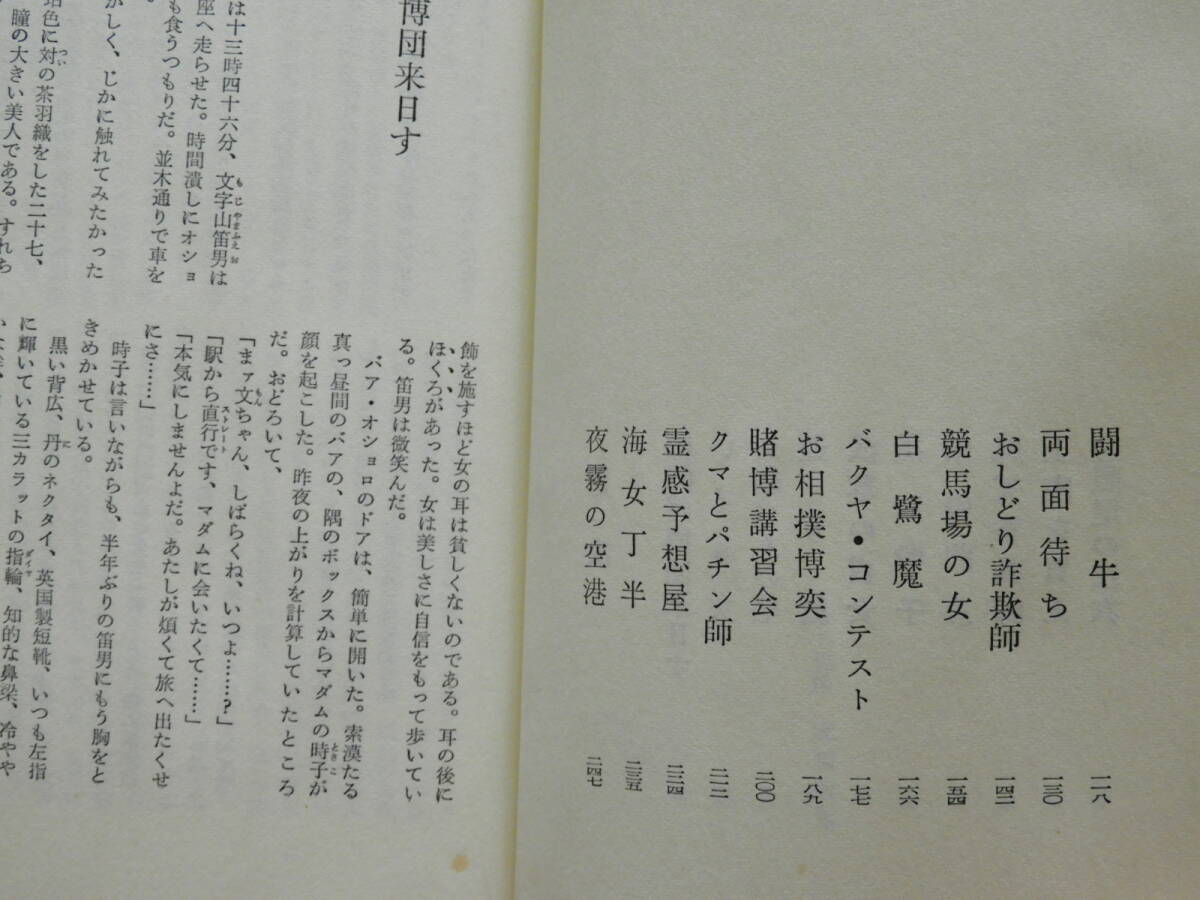 闘牛 一一八
両面待ち 一三〇
おしどり詐欺師 一四二
競馬場の女 一五四
白鷺魔 一六六
バクヤ・コンテスト 一七七
お相撲博奕 一八九
賭博講習会 二〇〇
クマとパチン師 二一二
霊感予想屋 二二四
海女丁半 二三五
夜霧の空港 二四七
博団来日す
は十三時四十六分、文字山笛男は
座へ走らせた。時間潰しにオショ
も食うつもりだ。並木通りで車を
がしく、じかに触れてみたかった
色に対の茶羽織をした二十七、
瞳の大きい美人である。すれち
飾を施すほど女の耳は貧しくないのである。耳の後に
ほくろがあった。女は美しさに自信をもって歩いてい
る。笛男は微笑んだ。
バア・オショロのドアは、簡単に開いた。索漠たる
真っ昼間のバアの、隅のボックスからマダムの時子が
顔を起こした。昨夜の上がりを計算していたところ
だ。おどろいて、
「まァ文ちゃん、しばらくね、いつよ……?」
「駅から直行です、マダムに会いたくて……」
「本気にしませんよだ。あたしが煩くて旅へ出たくせ
にさ……」
時子は言いながらも、半年ぶりの笛男にもう胸をと
きめかせている。
黒い背広、丹のネクタイ、英国製短靴、いつも左指
に輝いている三カラットの指輪、知的な鼻梁、冷やや